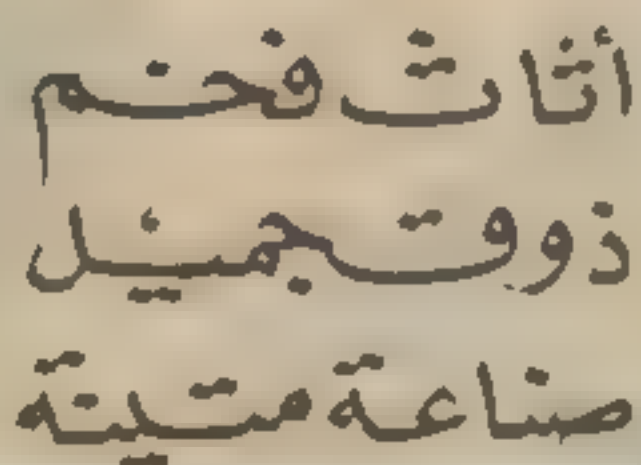 أثاث فخم
ذوق جميل
صناعة متينة